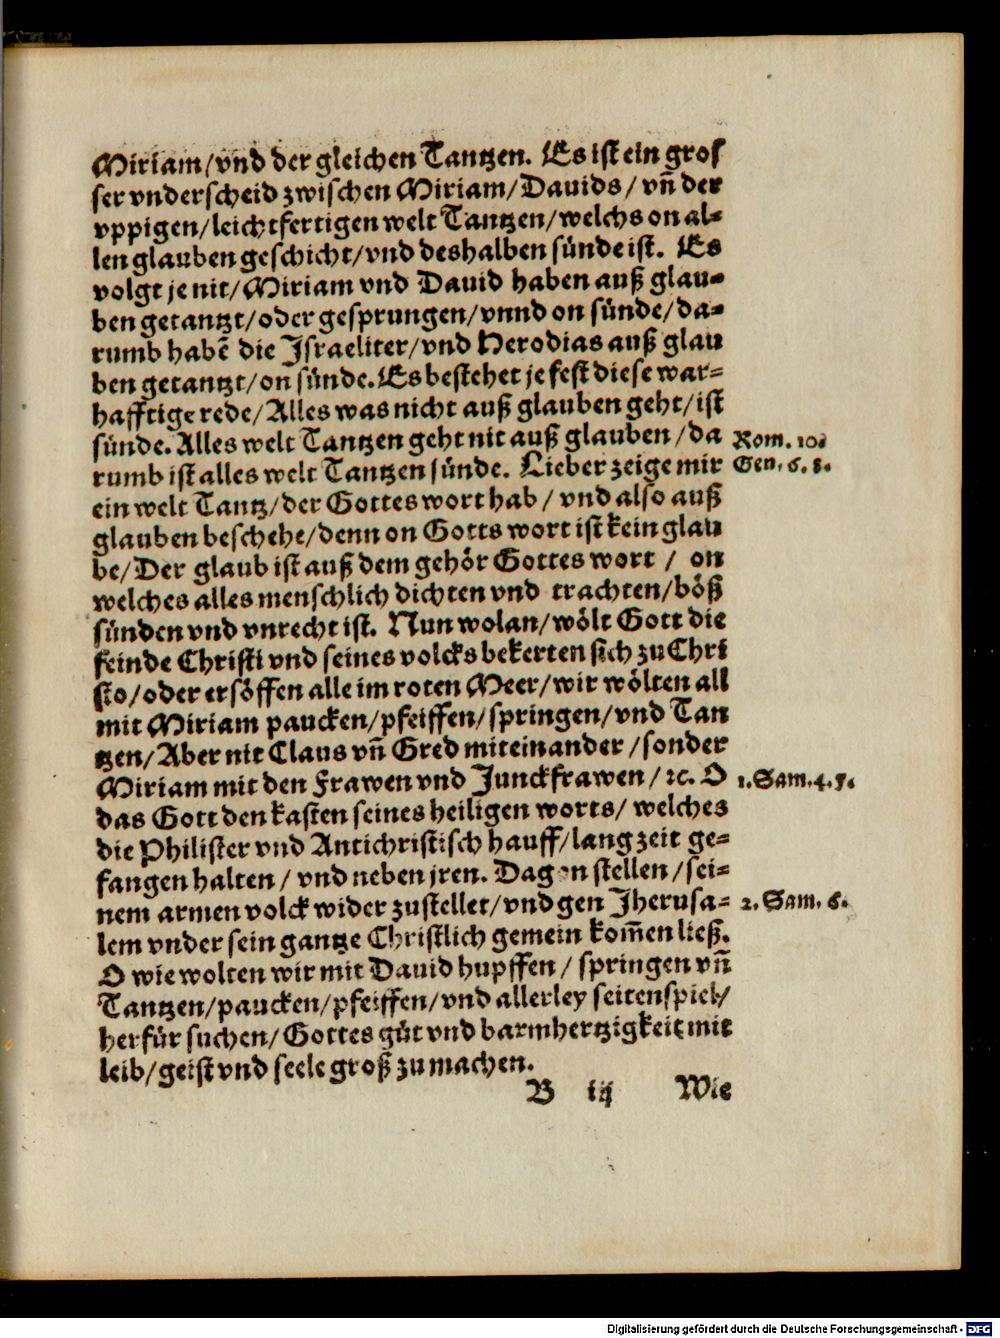 Miriam/vnd der gleichen Tantzen. Es ist ein gros
ser vnderscheid zwischen Miriam/Dauids/ vn̄ der
vppigen/leichtfertigen welt Tantzen/welchs on al⸗
len glauben geschicht/vnd deshalben sünde ist. Es
volgt je nit/Miriam vnd Dauid haben auß glau⸗
ben getantzt/oder gesprungen/vnnd on sünde/da⸗
rumb habē die Israeliter/vnd Herodias auß glau
ben getantzt/on sünde. Es bestehet je fest diese war⸗
hafftige rede/Alles was nicht auß glauben geht/ist
sünde. Alles welt Tantzen geht nit auß glauben/da
Rom. 10.
rumb ist alles welt Tantzen sünde. Lieber zeige mir
Gen. 6. 8.
ein welt Tantz/der Gottes wort hab/ vnd also auß
glauben beschehe/denn on Gotts wort ist kein glau
be/Der glaub ist auß dem gehör Gottes wort / on
welches alles menschlich dichten vnd trachten/böß
sünden vnd vnrecht ist. Nun wolan/wölt Gott die
feinde Christi vnd seines volcks bekerten sich zu Chri
sto/oder ersöffen alle im roten Meer/wir wölten all
mit Miriam paucken/pfeiffen/springen/vnd Tan
tzen/Aber nit Claus vn̄ Gred miteinander/sonder
Miriam mit den Frawen vnd Junckfrawen/ ꝛc. O
1. Sam. 4. 5.
das Gott den kasten seines heiligen worts/ welches
die Philister vnd Antichristisch hauff/lang zeit ge⸗
fangen halten/ vnd neben jren. Dagon stellen/sei⸗
nem armen volck wider zustellet/vnd gen Jherusa⸗
2. Sam. 6.
lem vnder sein gantze Christlich gemein kom̄en ließ.
O wie wolten wir mit Dauid hupffen/ springen vn̄
Tantzen/paucken/pfeiffen/vnd allerley seitenspiel/
herfür suchen/Gottes güt vnd barmhertzigkeit mit
leib/geist vnd seele groß zu machen.
B iij Wie
Digitalisierung gefördert durch die Deutsche Forschungsgemeinschaft - DFG